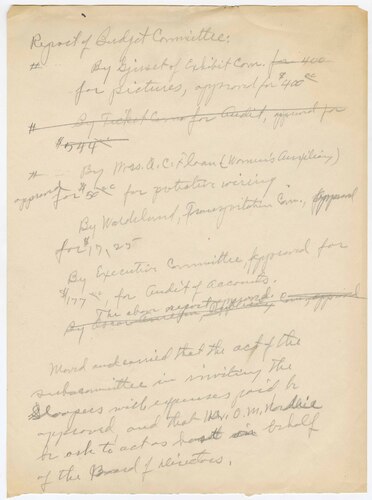 Report of Budget Committee:
# By Gjerset of Exhibit Com. for 400
for pictures, approved for $400.00
# By Ticket Com for Audit, approved for
$544
# By Mrs. A. C. Floan (Women's Auxiliary)
approved for $50.00 for putative wiring
By Wardelund, Transportation Com., Approved
for $17,25
By Executive Committee approved for
$177.00, for Audit of accounts.
The above report approved.
By Com, approved
Moved and carried that the act of the
subcommittee in inviting the
Sloopers with expenses paid be
approved and that Rev. O. M. Nordlie
be ask to act as host in behalf
of the Board of Directors.